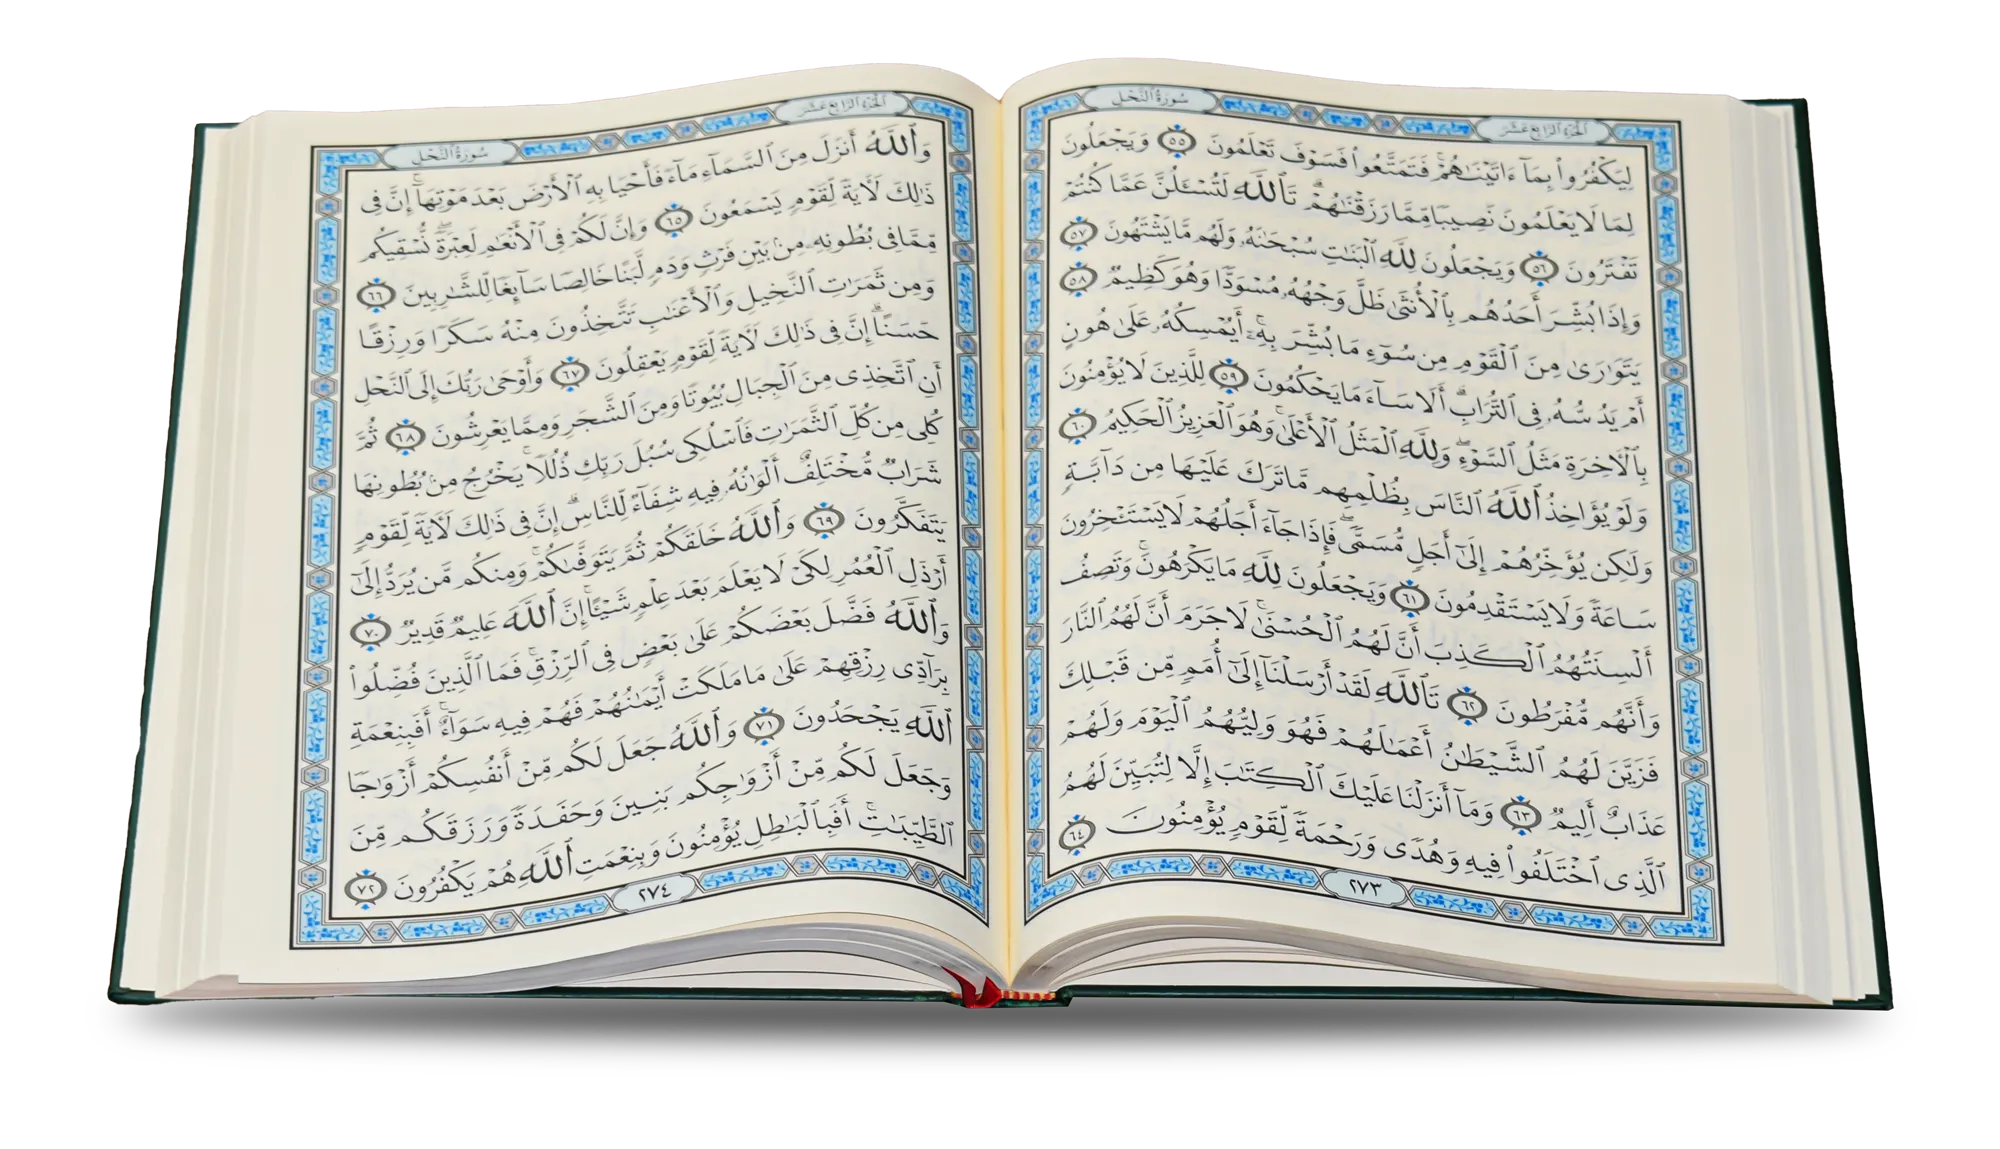 سُورَةُ النَّحْلِ
الجُزْءُ الرَّابِعَ عَشَرَ
لِيَكْفُرُوا۟ بِمَآ ءَاتَيْنَٰهُمْ ۚ فَتَمَتَّعُوا۟ فَسَوْفَ تَعْلَمُونَ ٥٥ وَيَجْعَلُونَ
لِمَا لَا يَعْلَمُونَ نَصِيبًا مِّمَّا رَزَقْنَٰهُمْ ۗ تَٱللَّهِ لَتُسْـَٔلُنَّ عَمَّا كُنتُمْ
تَفْتَرُونَ ٥٦ وَيَجْعَلُونَ لِلَّهِ ٱلْبَنَٰتِ سُبْحَٰنَهُۥ وَلَهُم مَّا يَشْتَهُونَ ٥٧
وَإِذَا بُشِّرَ أَحَدُهُم بِٱلْأُنثَىٰ ظَلَّ وَجْهُهُۥ مُسْوَدًّا وَهُوَ كَظِيمٌ ٥٨
يَتَوَٰرَىٰ مِنَ ٱلْقَوْمِ مِن سُوٓءِ مَا بُشِّرَ بِهِۦٓ ۚ أَيُمْسِكُهُۥ عَلَىٰ هُونٍ
أَمْ يَدُسُّهُۥ فِى ٱلتُّرَابِ ۗ أَلَا سَآءَ مَا يَحْكُمُونَ ٥٩ لِلَّذِينَ لَا يُؤْمِنُونَ
بِٱلْـَٔاخِرَةِ مَثَلُ ٱلسَّوْءِ ۖ وَلِلَّهِ ٱلْمَثَلُ ٱلْأَعْلَىٰ ۚ وَهُوَ ٱلْعَزِيزُ ٱلْحَكِيمُ ٦٠
وَلَوْ يُؤَاخِذُ ٱللَّهُ ٱلنَّاسَ بِظُلْمِهِم مَّا تَرَكَ عَلَيْهَا مِن دَآبَّةٍ
وَلَٰكِن يُؤَخِّرُهُمْ إِلَىٰٓ أَجَلٍ مُّسَمًّى ۖ فَإِذَا جَآءَ أَجَلُهُمْ لَا يَسْتَـْٔخِرُونَ
سَاعَةً وَلَا يَسْتَقْدِمُونَ ٦١ وَيَجْعَلُونَ لِلَّهِ مَا يَكْرَهُونَ ۚ وَتَصِفُ
أَلْسِنَتُهُمُ ٱلْكَذِبَ أَنَّ لَهُمُ ٱلْحُسْنَىٰ ۚ لَا جَرَمَ أَنَّ لَهُمُ ٱلنَّارَ
وَأَنَّهُم مُّفْرَطُونَ ٦٢ تَٱللَّهِ لَقَدْ أَرْسَلْنَآ إِلَىٰٓ أُمَمٍ مِّن قَبْلِكَ
فَزَيَّنَ لَهُمُ ٱلشَّيْطَٰنُ أَعْمَٰلَهُمْ فَهُوَ وَلِيُّهُمُ ٱلْيَوْمَ وَلَهُمْ
عَذَابٌ أَلِيمٌ ٦٣ وَمَآ أَنزَلْنَا عَلَيْكَ ٱلْكِتَٰبَ إِلَّا لِتُبَيِّنَ لَهُمُ
ٱلَّذِى ٱخْتَلَفُوا۟ فِيهِ وَهُدًى وَرَحْمَةً لِّقَوْمٍ يُؤْمِنُونَ ٦٤
٢٧٣
الجُزْءُ الرَّابِعَ عَشَرَ
سُورَةُ النَّحْلِ
وَٱللَّهُ أَنزَلَ مِنَ ٱلسَّمَآءِ مَآءً فَأَحْيَا بِهِ ٱلْأَرْضَ بَعْدَ مَوْتِهَآ ۚ إِنَّ فِى
ذَٰلِكَ لَـَٔايَةً لِّقَوْمٍ يَسْمَعُونَ ٦٥ وَإِنَّ لَكُمْ فِى ٱلْأَنْعَٰمِ لَعِبْرَةً ۖ نُّسْقِيكُم
مِّمَّا فِى بُطُونِهِۦ مِنۢ بَيْنِ فَرْثٍ وَدَمٍ لَّبَنًا خَالِصًا سَآئِغًا لِّلشَّٰرِبِينَ ٦٦
وَمِن ثَمَرَٰتِ ٱلنَّخِيلِ وَٱلْأَعْنَٰبِ تَتَّخِذُونَ مِنْهُ سَكَرًا وَرِزْقًا
حَسَنًا ۗ إِنَّ فِى ذَٰلِكَ لَـَٔايَةً لِّقَوْمٍ يَعْقِلُونَ ٦٧ وَأَوْحَىٰ رَبُّكَ إِلَى ٱلنَّحْلِ
أَنِ ٱتَّخِذِى مِنَ ٱلْجِبَالِ بُيُوتًا وَمِنَ ٱلشَّجَرِ وَمِمَّا يَعْرِشُونَ ٦٨ ثُمَّ
كُلِى مِن كُلِّ ٱلثَّمَرَٰتِ فَٱسْلُكِى سُبُلَ رَبِّكِ ذُلُلًا ۚ يَخْرُجُ مِنۢ بُطُونِهَا
شَرَابٌ مُّخْتَلِفٌ أَلْوَٰنُهُۥ فِيهِ شِفَآءٌ لِّلنَّاسِ ۗ إِنَّ فِى ذَٰلِكَ لَـَٔايَةً لِّقَوْمٍ
يَتَفَكَّرُونَ ٦٩ وَٱللَّهُ خَلَقَكُمْ ثُمَّ يَتَوَفَّىٰكُمْ ۚ وَمِنكُم مَّن يُرَدُّ إِلَىٰٓ
أَرْذَلِ ٱلْعُمُرِ لِكَىْ لَا يَعْلَمَ بَعْدَ عِلْمٍ شَيْـًٔا ۚ إِنَّ ٱللَّهَ عَلِيمٌ قَدِيرٌ ٧٠
وَٱللَّهُ فَضَّلَ بَعْضَكُمْ عَلَىٰ بَعْضٍ فِى ٱلرِّزْقِ ۚ فَمَا ٱلَّذِينَ فُضِّلُوا۟
بِرَآدِّى رِزْقِهِمْ عَلَىٰ مَا مَلَكَتْ أَيْمَٰنُهُمْ فَهُمْ فِيهِ سَوَآءٌ ۚ أَفَبِنِعْمَةِ
ٱللَّهِ يَجْحَدُونَ ٧١ وَٱللَّهُ جَعَلَ لَكُم مِّنْ أَنفُسِكُمْ أَزْوَٰجًا
وَجَعَلَ لَكُم مِّنْ أَزْوَٰجِكُم بَنِينَ وَحَفَدَةً وَرَزَقَكُم مِّنَ
ٱلطَّيِّبَٰتِ ۚ أَفَبِٱلْبَٰطِلِ يُؤْمِنُونَ وَبِنِعْمَتِ ٱللَّهِ هُمْ يَكْفُرُونَ ٧٢
٢٧٤